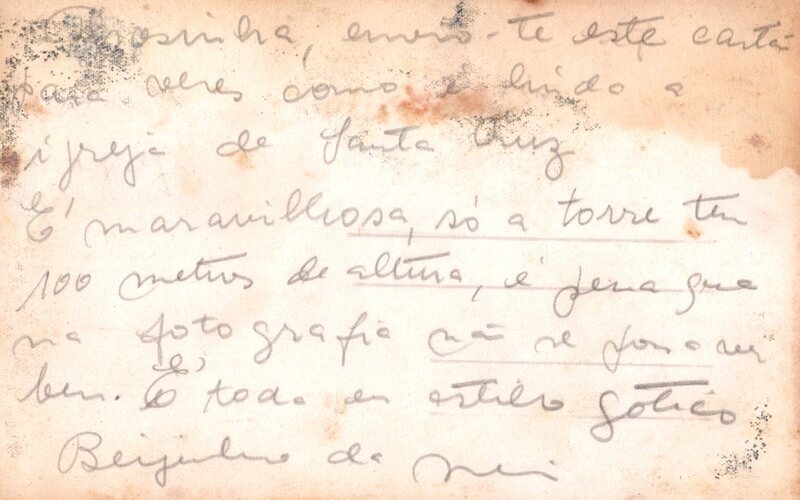 envio-te este cartão
para veres como é lindo a
igreja de Santa Cruz
É maravilhosa, só a torre tem
100 metros de altura, é pena que
na fotografia não se possa ver
bem. É toda em estilo gotico
Beijinhos da